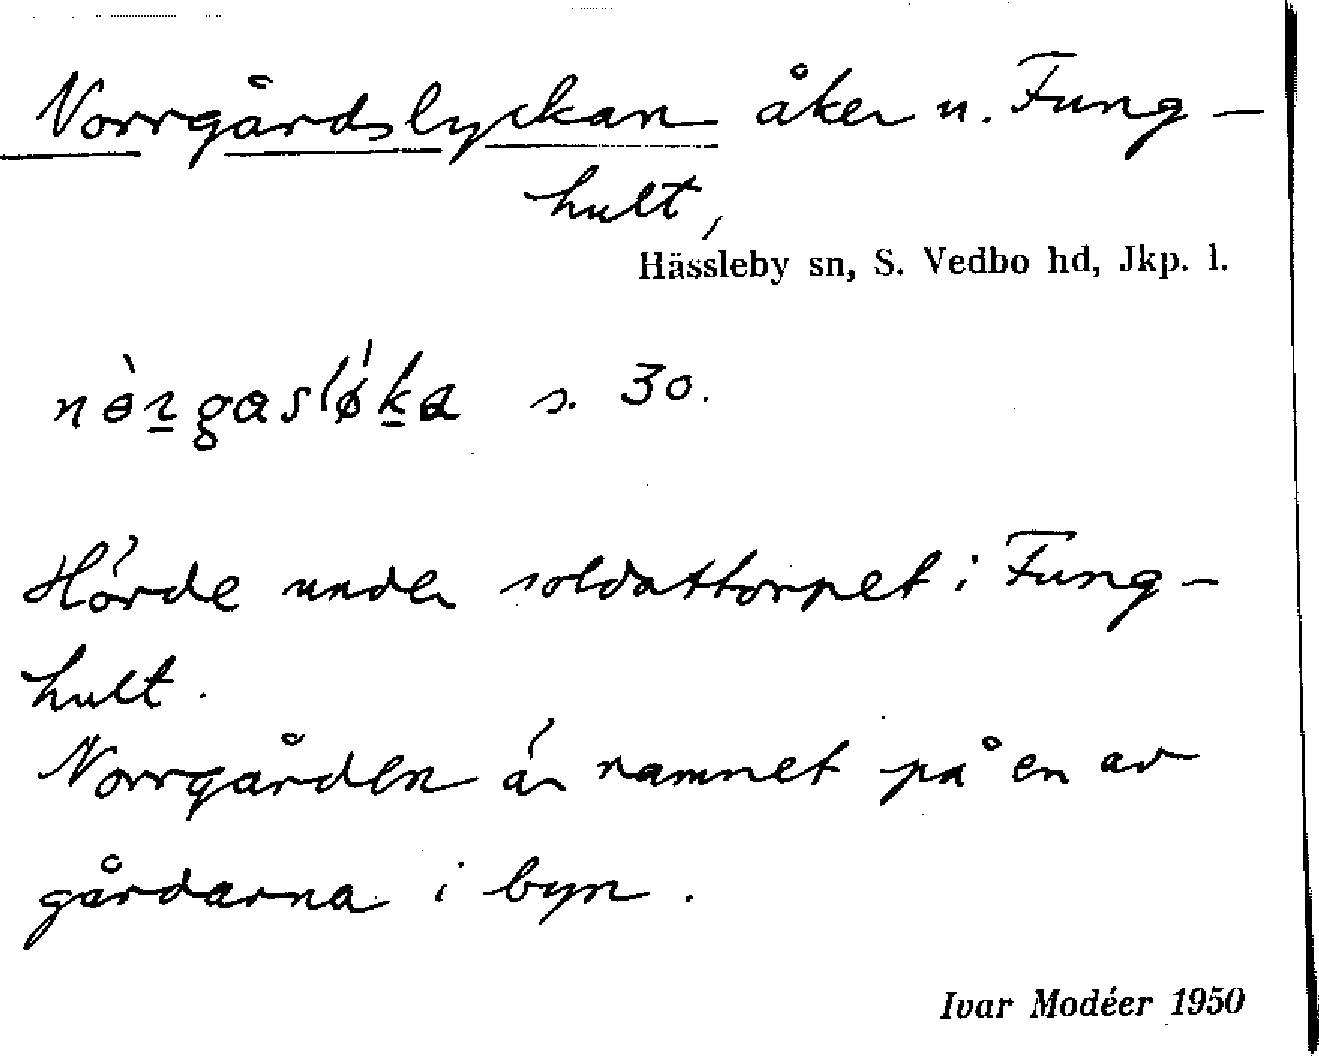 Norrgårdslyckan åker u. Fung-
hult,
Hässleby sn, S. Vedbo hd, Jkp. l.
s. 30.
Hörde under soldattorpet i Fung-
hult.
Norrgården är namnet på en av
gårdarna i byn.
Ivar Modéer 1950